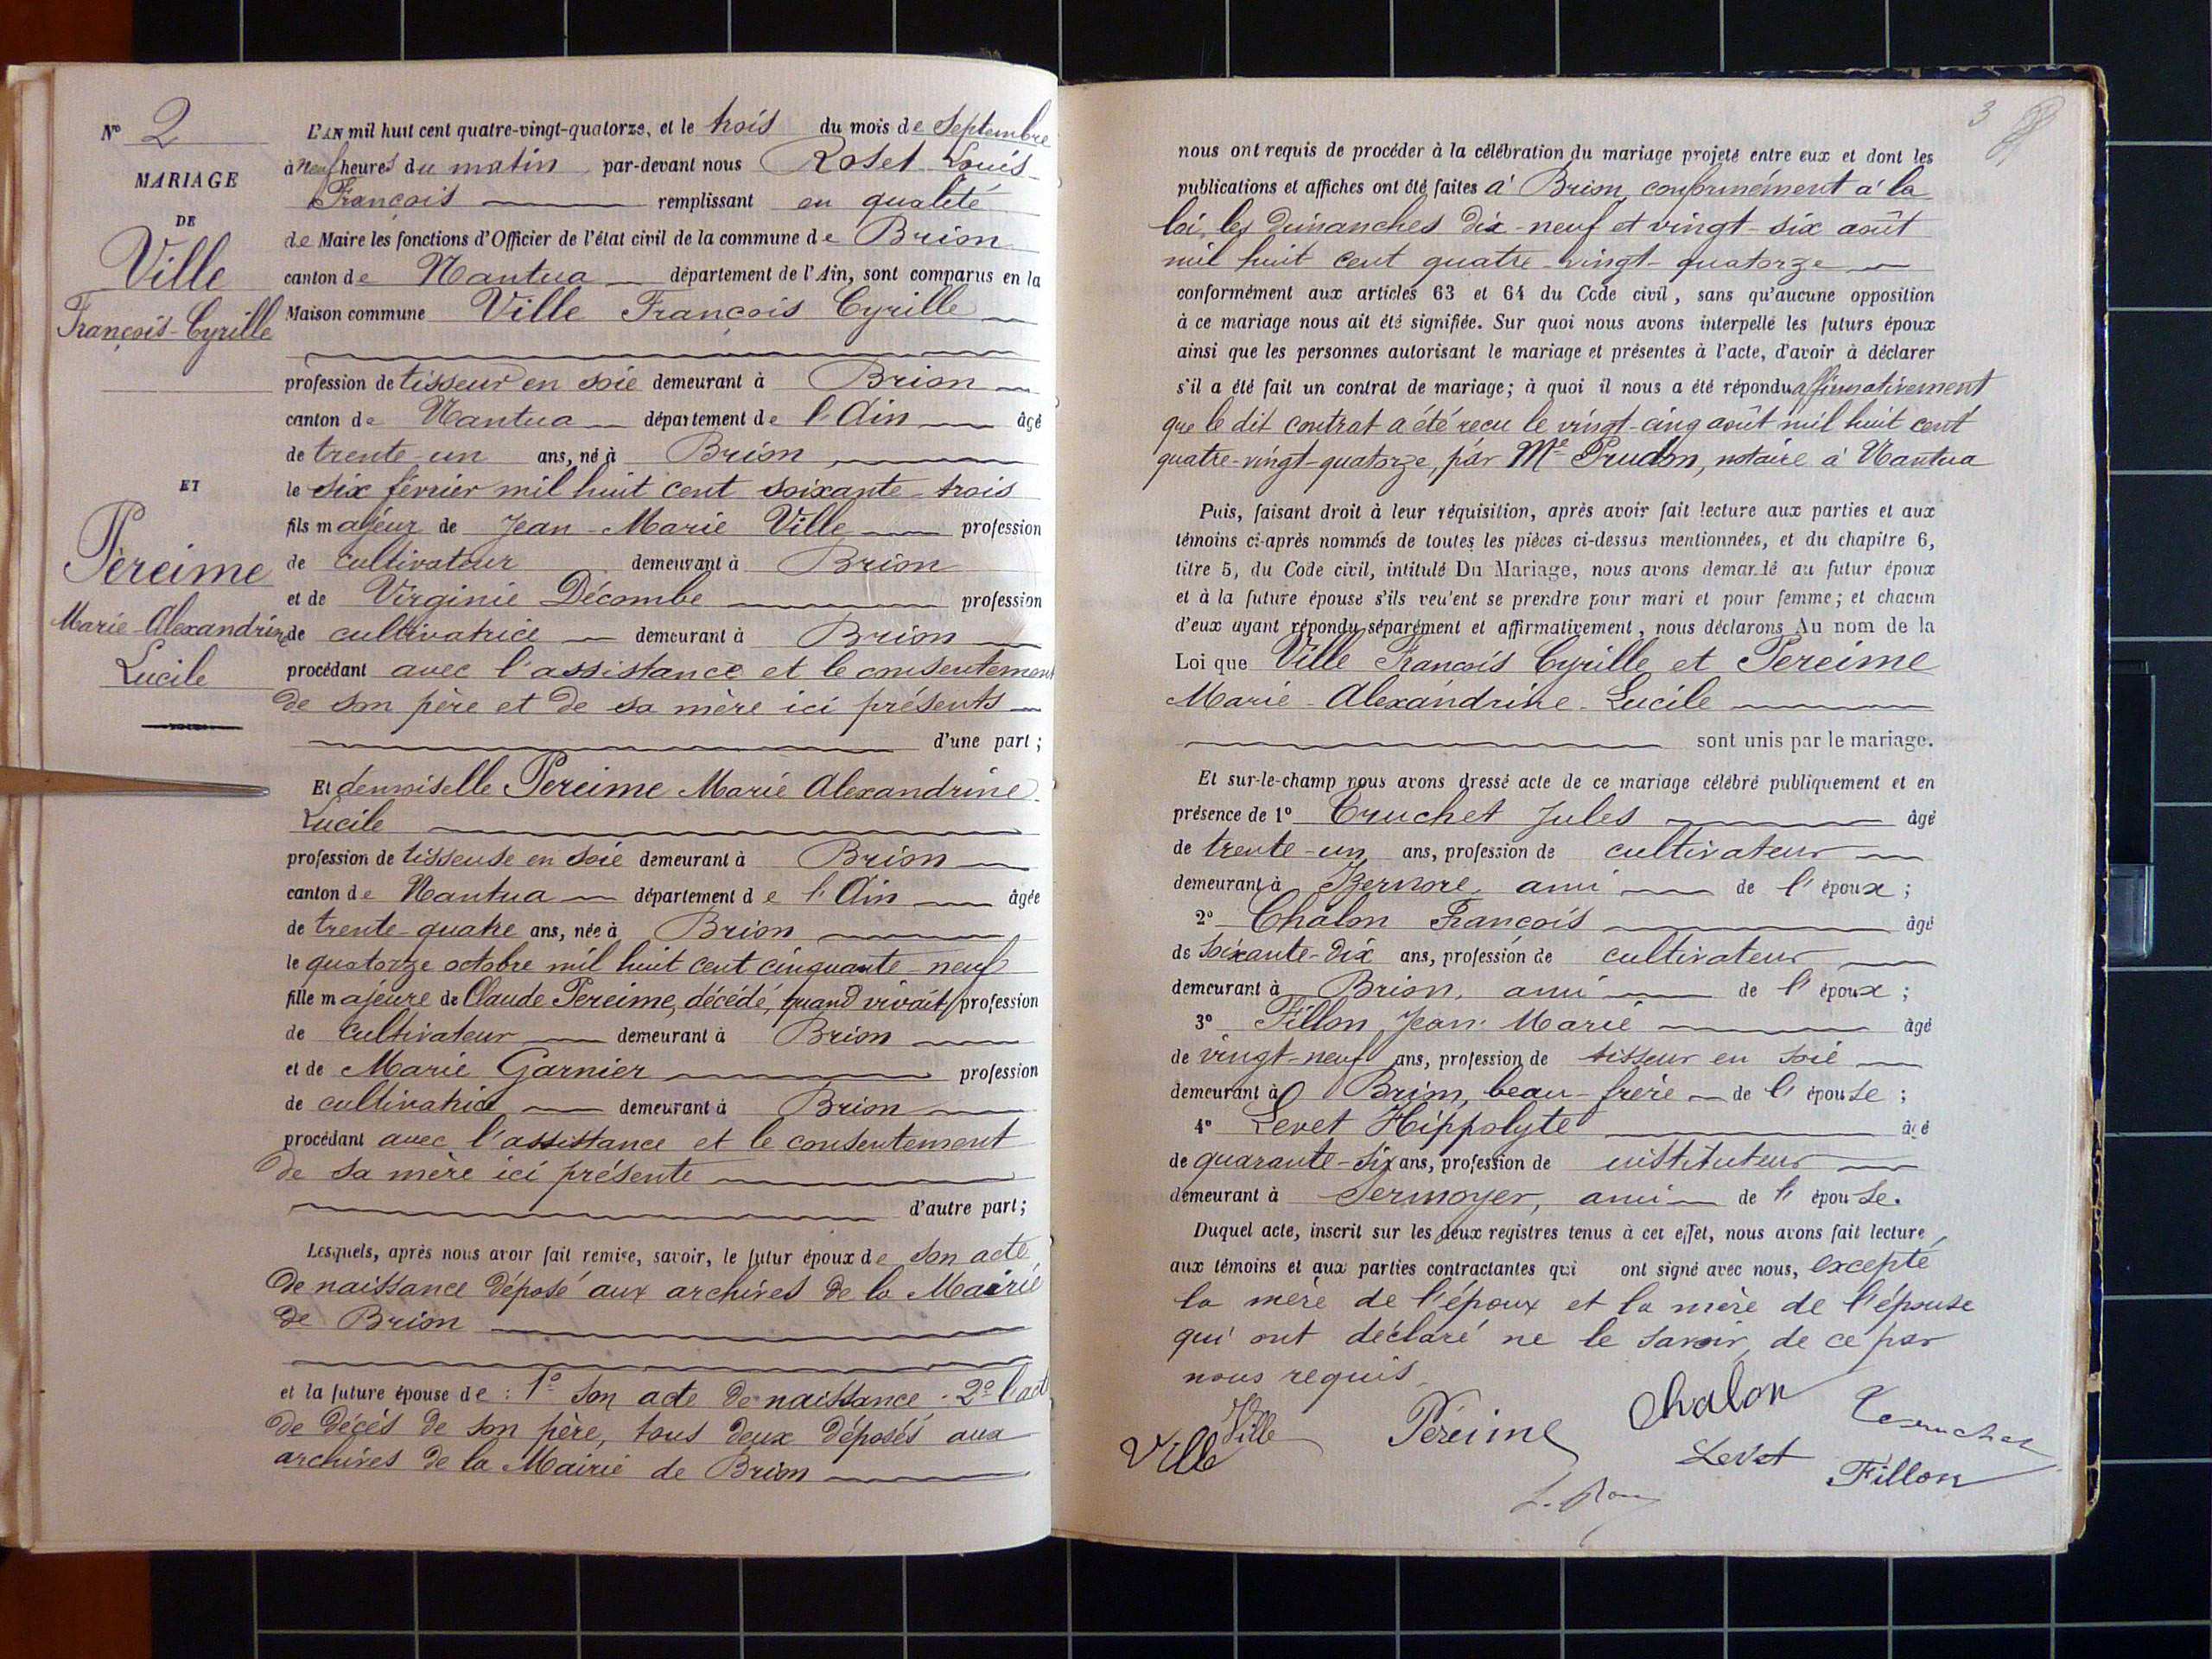 N° 2
MARIAGE
DE
Ville
François-Cyrille
ET
Péreime
Marie-Alexandrine
Lucile
L'AN mil huit cent quatre-vingt-quatorze, et le trois du mois de Septembre
à neuf heures du matin par-devant nous Roset Louis
François remplissant en qualité
de Maire les fonctions d'Officier de l'état civil de la commune de Brion
canton de Nantua département de l'Ain, sont comparus en la
Maison commune Ville François Cyrille
profession de tisseur en soie demeurant à Brion
canton de Nantua département de l'Ain âgé
de trente-un ans, né à Brion
le six février mil huit cent soixante-trois
fils majeur de Jean-Marie Ville profession
de cultivateur demeurant à Brion
et de Virginie Décombe profession
de cultivatrice demeurant à Brion
procédant avec l'assistance et le consentement
de son père et de sa mère ici présents
d'une part;
Et demoiselle Pereime Marie Alexandrine
Lucile
profession de tisseuse en soie demeurant à Brion
canton de Nantua département de l'Ain âgée
de trente-quatre ans, née à Brion
le quatorze octobre mil huit cent cinquante-neuf
fille majeure de Claude Pereime, décédé, quand vivait, profession
de cultivateur demeurant à Brion
et de Marie Garnier profession
de cultivatrice demeurant à Brion
procédant avec l'assistance et le consentement
de sa mère ici présente
d'autre part;
Lesquels, après nous avoir fait remise, savoir, le futur époux de son acte
de naissance déposé aux archives de la Mairie
de Brion
et la future épouse de : 1° son acte de naissance - 2° l'acte
de décès de son père, tous deux déposés aux
archives de la Mairie de Brion
3
nous ont requis de procéder à la célébration du mariage projeté entre eux et dont les
publications et affiches ont été faites à Brion, conformément à la
loi, les dimanches dix-neuf et vingt-six août
mil huit cent quatre-vingt-quatorze
conformément aux articles 63 et 64 du Code civil, sans qu'aucune opposition
à ce mariage nous ait été signifiée. Sur quoi nous avons interpellé les futurs époux
ainsi que les personnes autorisant le mariage et présentes à l'acte, d'avoir à déclarer
s'il a été fait un contrat de mariage; à quoi il nous a été répondu affirmativement
que le dit contrat a été reçu le vingt-cinq août mil huit cent
quatre-vingt-quatorze, par Me Prudon, notaire à Nantua
Puis, faisant droit à leur réquisition, après avoir fait lecture aux parties et aux
témoins ci-après nommés de toutes les pièces ci-dessus mentionnées, et du chapitre 6,
titre 5, du Code civil, intitulé Du Mariage, nous avons demandé au futur époux
et à la future épouse s'ils veulent se prendre pour mari et pour femme; et chacun
d'eux ayant répondu séparément et affirmativement, nous déclarons Au nom de la
Loi que Ville François Cyrille et Pereime
Marie-Alexandrine-Lucile
sont unis par le mariage.
Et sur-le-champ nous avons dressé acte de ce mariage célébré publiquement et en
présence de 1° Truchet Jules âgé
de trente-un ans, profession de cultivateur
demeurant à Izernore, ami de l'époux;
2° Chalon François âgé
de soixante-dix ans, profession de cultivateur
demeurant à Brion, ami de l'époux;
3° Fillon Jean-Marie âgé
de vingt-neuf ans, profession de tisseur en soie
demeurant à Brion, beau-frère de l'épouse;
4° Levet Hippolyte âgé
de quarante-six ans, profession de instituteur
demeurant à Sermoyer, ami de l'épouse.
Duquel acte, inscrit sur les deux registres tenus à cet effet, nous avons fait lecture
aux témoins et aux parties contractantes qui ont signé avec nous, excepté
la mère de l'époux et la mère de l'épouse
qui ont déclaré ne le savoir, de ce par
nous requis.
Ville Ville Péreime Chalon Truchet
Levet Fillon